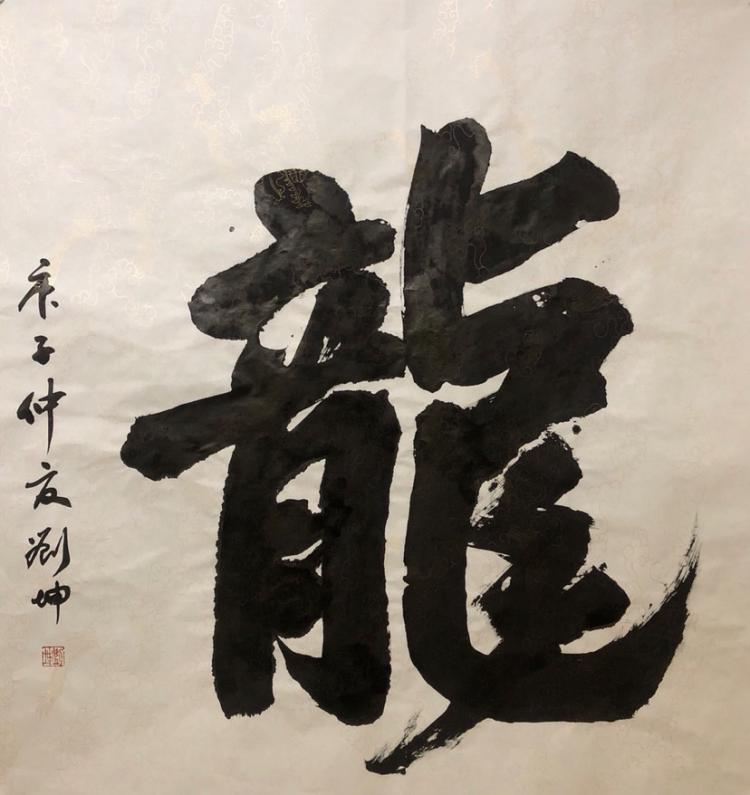 龍
庚子仲夏劉坤